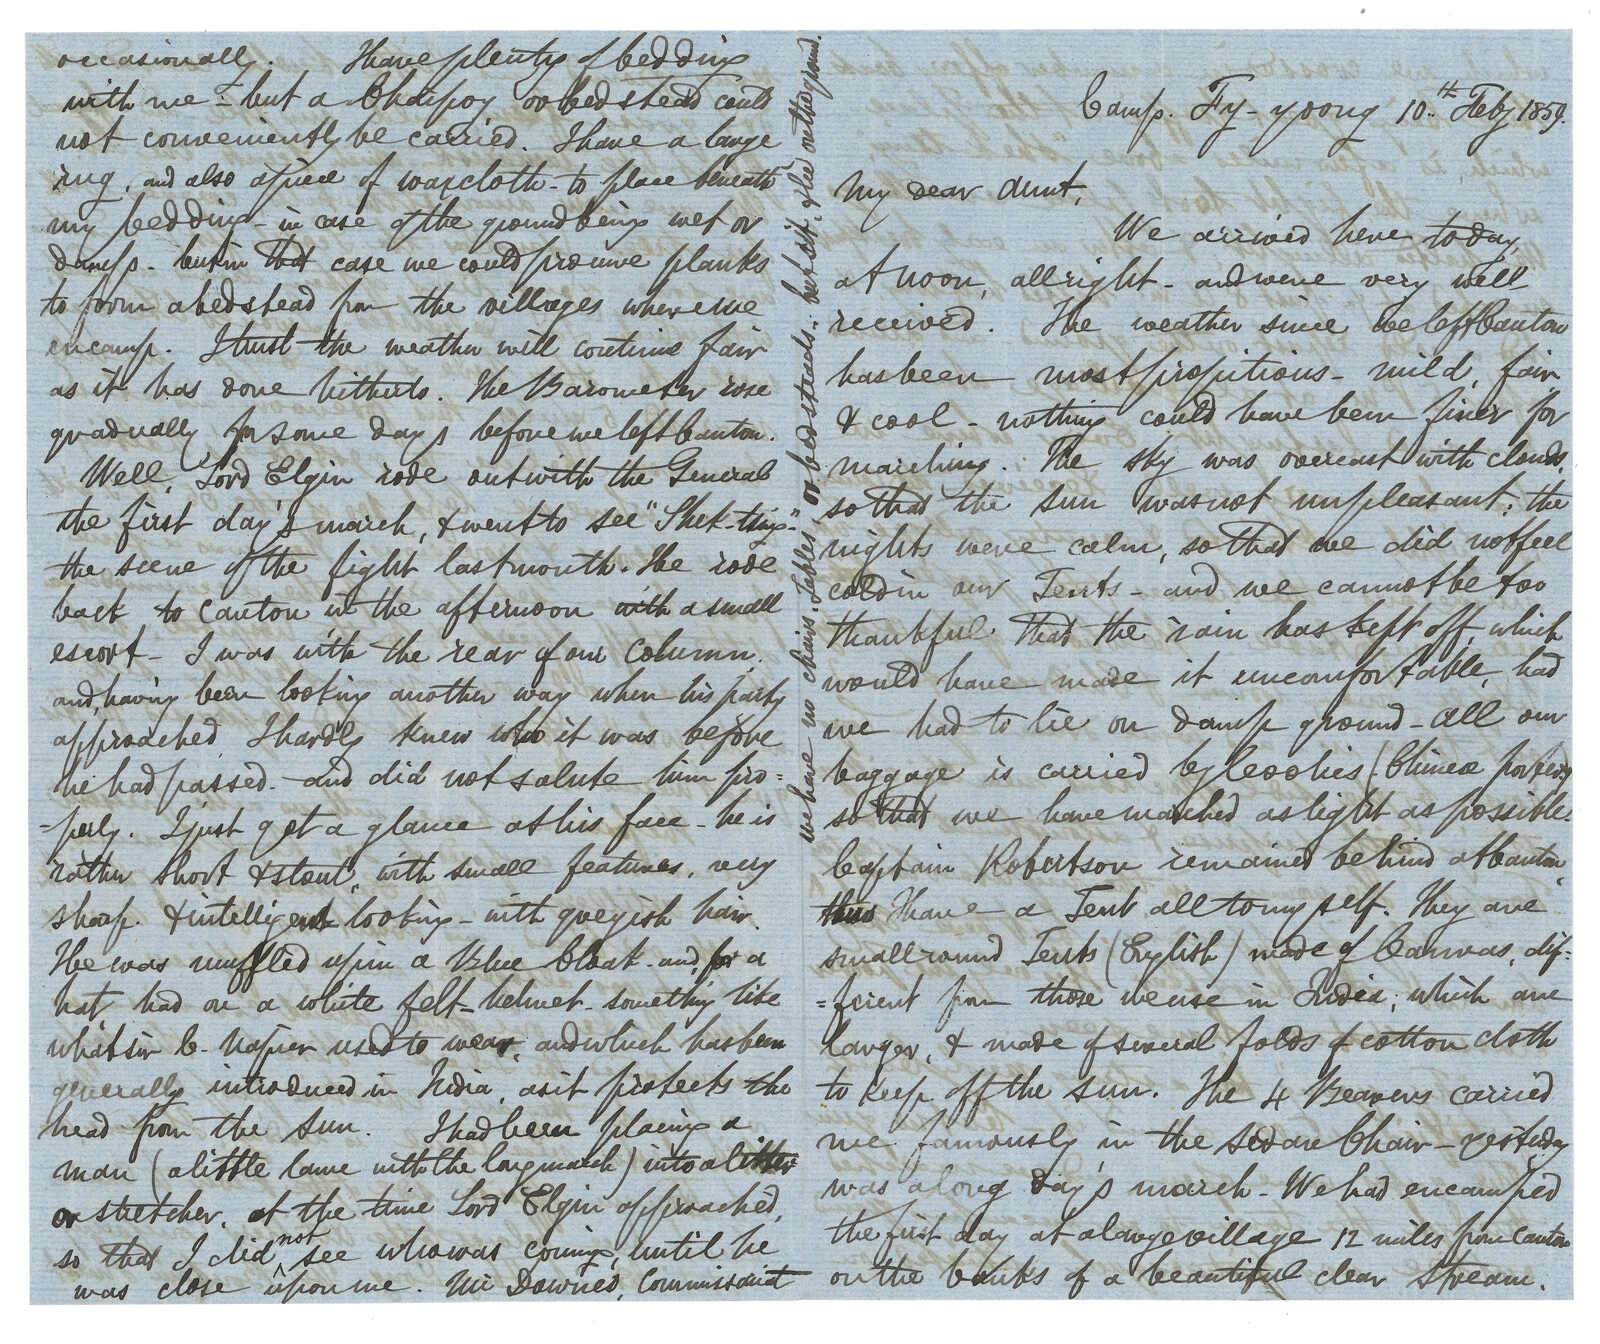 Camp. Fy-yoong 10th Feby 1859.
My dear Aunt,
We arrived here today,
at noon, all right - and were very well
received. The weather since we left Canton
has been most propitious - mild, fair,
& cool - nothing could have been finer for
marching. The sky was overcast with clouds,
so that the sun was not unpleasant; the
nights were calm, so that we did not feel
cold in our Tents - and we cannot be too
thankful that the rain has kept off, which
would have made it uncomfortable, had
we had to lie on damp ground - all our
baggage is carried by Coolies (Chinese porters)
so that we have marched as light as possible.
Captain Robertson remained behind at Canton,
thus I have a Tent all to myself. They are
small round Tents (English) made of Canvas, dif=
=ferent from those we use in India, which are
larger, & made of several folds of cotton cloth
to keep off the sun. The 4 Bearers carried
me famously in the Sedan Chair - yesterday
was a long day's march - We had encamped
the first day at a large village 12 miles from Canton
on the banks of a beautiful clear stream.
we have no chairs, Tables, or bedsteads, but sit, & lie on the ground.
occasionally. I have plenty of bedding
with me - but a Charpoy or bedstead could
not conveniently be carried. I have a large
rug, and also a piece of waxcloth - to place beneath
my bedding - in case of the ground being wet or
damp. but in that case we could procure planks
to form a bedstead from the villages where we
encamp. I trust the weather will continue fair
as it has done hitherto. The Barometer rose
gradually for some days before we left Canton.
Well, Lord Elgin rode out with the General
the first day's march, & went to see "Shek-tsing"
the scene of the fight last month. He rode
back to Canton in the afternoon with a small
escort - I was with the rear of our Column,
and, having been looking another way when his party
approached, I hardly knew who it was before
he had passed - and did not salute him pro=
=perly. I just got a glance at his face - he is
rather short & stout, with small features, very
sharp & intelligent looking - with greyish hair.
He was muffled up in a Blue Cloak - and, for a
hat had on a white felt-helmet - something like
what Sir C. Napier used to wear, and which has been
generally introduced in India, as it protects the
head from the sun. I had been placing a
man (a little lame with the long march) into a litter
or stretcher, at the time Lord Elgin approached,
so that I did not see who was coming, until he
was close upon me. Mr Downes, Commissariat